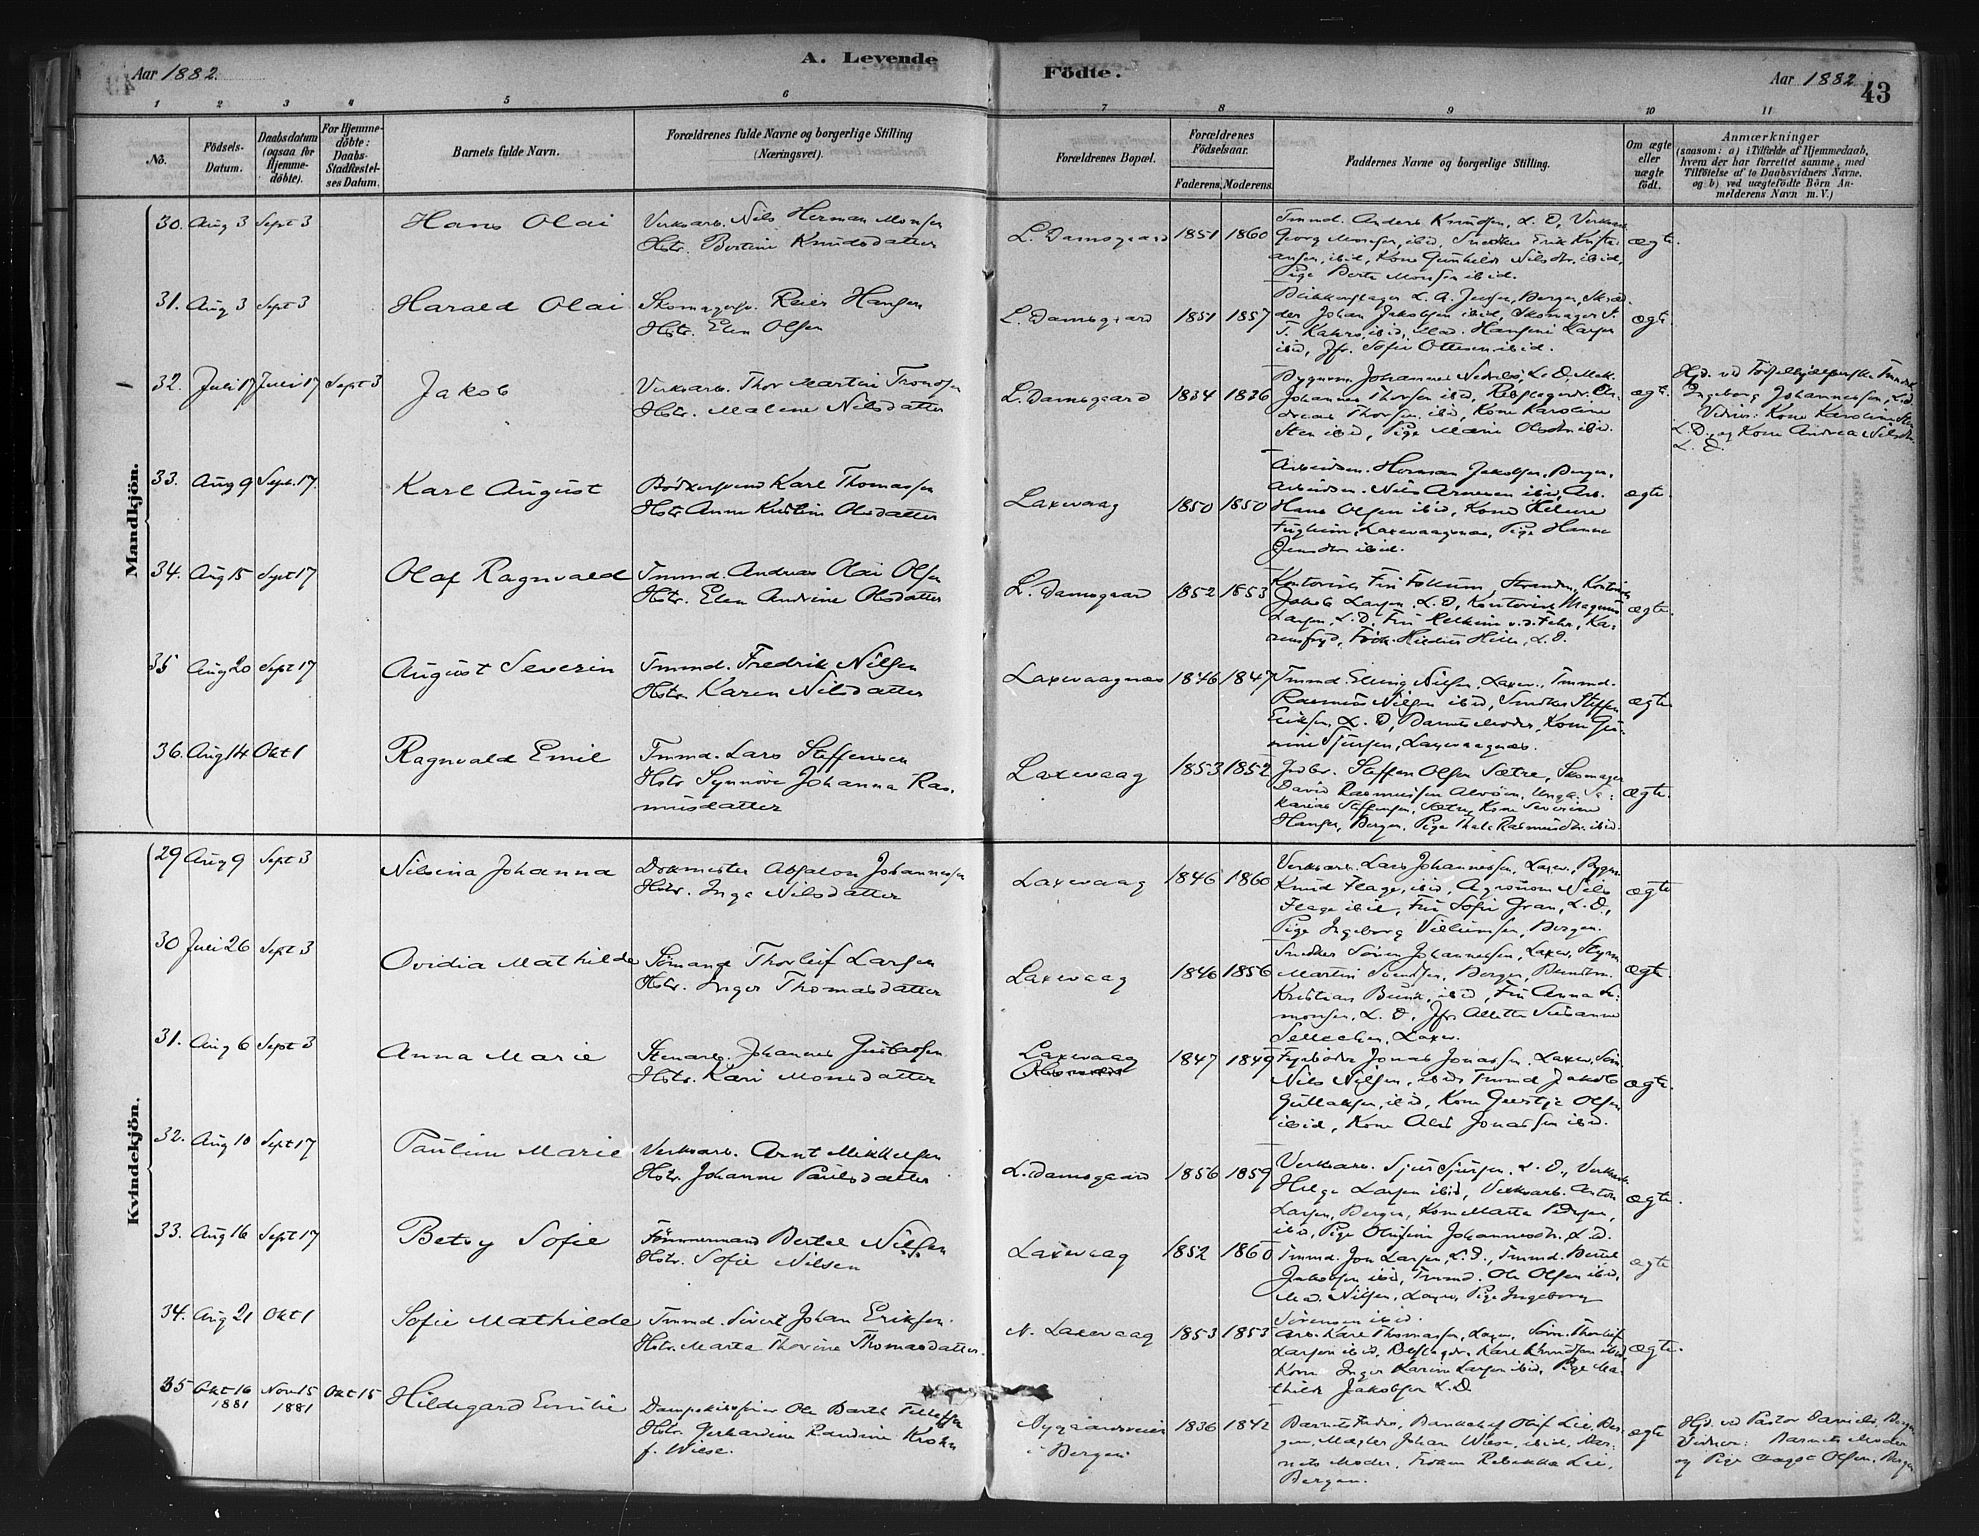 Aar 1882.
A. Levende
Födte.
Aar 1882
43
1 2 3 4 5 6 7 8 9 10 11
No.
Födsels-Datum.
Daabsdatum (ogsaa for Hjemme-döbte).
For Hjemme-döbte: Daabs-Stadfæstel-ses Datum.
Barnets fulde Navn.
Forældrenes fulde Navne og borgerlige Stilling (Næringsvei).
Forældrenes Bopæl.
Forældrenes Födselsaar.
Faderens. Moderens.
Faddernes Navne og borgerlige Stilling.
Om ægte eller uægte födt.
Anmærkninger
(saasom: a) i Tilfælde af Hjemmedaab,
hvem der har forrettet samme, med
Tilföielse af to Daabsvidners Navne.
og b) ved uægtefödte Börn An-
melderens Navn m. V.)
Mandkjön.
30. Aug 3 Sept 3 Hans Olai Verksarb. Nils Herman Monsen
Hstr. Bertine Knudsdatter
L. Damsgaard 1851 1860
Tmmd. Anders Knudsen, L. D, Verksarb.
Georg Monsen, ibid, Snedker Erik Kristi-
ansen, ibid, Kone Gunhild Nilsdtr. ibid,
Pige Berte Monsen ibid.
ægte.
31. Aug 3 Sept 3 Harald Olai Skomagersv. Reier Hansen
Hstr. Elen Olsen
L. Damsgaard 1851 1857
L. A. Jensen, Bergen, Skræd-
der Johan Jakobsen ibid, Skomager
ibid, Mad. Hansine Larsen
ibid, Jfr. Sofie Ottesen ibid.
ægte
32. Juli 17 Juli 17 Sept 3 Jakob Verksarb. Thor Martin Tronsen
Hstr. Malene Nilsdatter
L. Damsgaard 1834 1836
Johannes L. D,
Johannes Thorsen ibid, Rebslagerdr. An-
dreas Thorsen ibid, Kone Karoline
Sten ibid, Pige Marie Olsdtr ibid.
ægte.
Hjd. ved
Ingeborg Johannessen, L. D.
Vidner: Kone Karoline Sten
L. D. og Kone Andrea Nilsdtr.
L. D.
33. Aug 9 Sept. 17. Karl August Bödkersvend Karl Thomassen
Hstr. Anne Kristine Olsdatter
Laxevaag 1850 1850
Arbeidsm. Herman Jakobsen, Bergen,
Arbeidsm. Nils Arnesen ibid, Arb.
Hans Olsen ibid, Kone Helene
Laxevaagnæs, Pige Hanna
Jensdtr ibid.
ægte.
34. Aug 15 Sept 17 Olaf Ragnvald Tmmd. Andreas Olai Olsen
Hstr. Elen Andrine Olsdatter
L. Damsgaard 1852 1853
Jakob Larsen, L. D, Kontorist Magnus
Larsen, L. D, v. d. Fehr,
L. D.
ægte.
35 Aug 20 Sept 17 August Severin Tmmd. Fredrik Nilsen
Hstr. Karen Nilsdatter
Laxevaagnæs 1846 1847
Tmmd. Elling Nilsen, Laxev., Tmmd.
Rasmus Nilsen ibid, Snedker Steffen
Eriksen, L. D, Barnets Moder, Kone Gu-
rine Sjursen, Laxevaagnæs.
ægte.
36. Aug 14 Okt 1 Ragnvald Emil Tmmd. Lars Steffensen
Hstr Synnöve Johanna Ras-
musdatter
Laxevaag 1853 1852
Steffen Olsen Sætre, Skomager
David Rasmussen Alvöen, Ungk. Sa-
karias Steffensen, Sætre, Kone Severine
Hansen, Bergen, Pige Thale Rasmusdtr. ibid.
ægte.
Kvindekjön.
29 Aug 9 Sept 3 Nilsina Johanna Dokmester Absalon Johannessen
Hstr. Inga Nilsdatter
Laxevaag 1846 1860
Verksarb. Lars Johannessen, Laxev., Bygm.
Knud Flage, ibid, Agronom Nils
Flage ibid, Fru Sofie Gran, L. D.,
Pige Ingeborg Villumsen, Bergen.
ægte
30 Juli 26 Sept 3 Ovidia Mathilde Sömand Thorleif Larsen
Hstr. Inger Thomasdatter
Laxevaag 1846 1856
Snedker Sören Johannessen, Laxev,
Martin Svendsen, Bergen,
Kristian ibid, Fru Anna Si-
monsen, L. D, Jfr Alette Susanne
Laxev.
ægte.
31. Aug 6 Sept 3 Anna Marie Stenarb. Johannes Gustavsen
Hstr. Kari Monsdatter
Laxevaag 1847 1849
Fyrböder Jonas Jonassen, Laxev, Söm.
Nils Nilsen, ibid, Tmmd Jakob
Gullaksen, ibid, Kone Geertje Olsen
ibid, Kone Alis Jonassen ibid.
ægte.
32. Aug 10 Sept 17 Pauline Marie Verksarb. Arnt Mikkelsen
Hstr. Johanne Paulsdatter
L. Damsgaard 1856 1859
Verksarb. Sjur Sjursen, L. D., Verksarb.
Helge Larsen ibid, Verksarb. Anton
Larsen, Bergen, Kone Marta Pedersen,
ibid, Pige Olufine Johannesdtr. L. D.
ægte.
33. Aug 16 Sept 17 Betsy Sofie Tömmermand Bertel Nilsen
Hstr. Sofie Nilsen
Laxevaag 1852 1860
Tmmd. Jon Larsen, L. D., Tmmd. Bertel
Jakobsen ibid, Tmmd. Ole Olsen ibid,
Mad. Nilsen, Laxev, Pige Ingeborg
Sörensen ibid.
ægte
34. Aug 21 Okt 1 Sofie Mathilde Tmmd. Sivert Johan Eriksen.
Hstr. Marta Thorine Thomasdatter.
N. Laxevaag 1853 1853
Arb. Karl Thomassen, Laxev, Söm. Thorleif
Larsen ibid, Rebslagerdr. Karl Knudsen ibid,
Kone Inger Karine Larsen ibid, Pige Ma-
thilde Jakobsen L. D.
ægte.
35 Okt 16 1881 Nov 15 1881 Okt 15 Hildegard Emilie Dampskibsförer Ole Barth Tellefsen
Hstr. Gerhardine Randine Krohn
f. Wiese.
Nygaardsveien
i Bergen
1836 1842
Barnets Fader, Bankchef Oluf Lie, Ber-
gen, Mægler Johan Wiese, ibid, Bar-
nets Moder, Fröken Rebekka Lie,
Bergen.
ægte
Hjd. ved Pastor Daniels, Bergen
Vidner: Barnets Moder
og Pige Olsen, Bergen